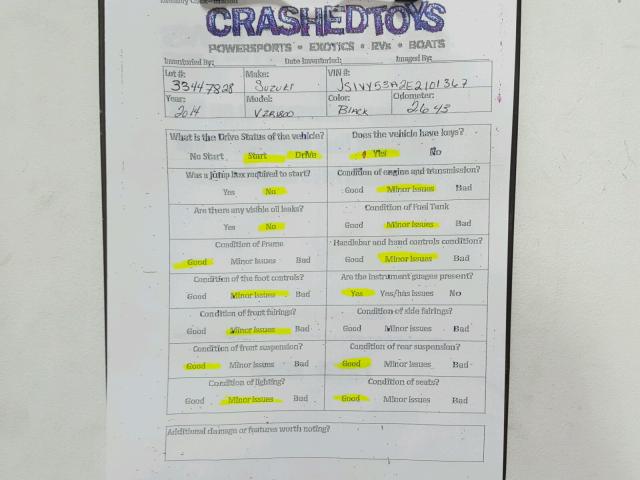 CRASHEDTOYS
POWERSPORTS • EXOTICS • RVs • BOATS
Inventoried By: Date Inventoried: Imaged By:
Lot #: Make: VIN #:
33447828 SUZUKI JS1VY53A2E2101367
Year: Model: Color: Odometer:
2014 VZR1800 BLACK 2643
What is the Drive Status of the vehicle? Does the vehicle have keys?
No Start Start Drive Yes No
Was a jump box required to start? Condition of engine and transmission?
Yes No Good Minor Issues Bad
Are there any visible oil leaks? Condition of Fuel Tank
Yes No Good Minor Issues Bad
Condition of Frame Handlebar and hand controls condition?
Good Minor Issues Bad Good Minor Issues Bad
Condition of the foot controls? Are the instrument guages present?
Good Minor Issues Bad Yes Yes/has Issues No
Condition of front fairings? Condition of side fairings?
Good Minor Issues Bad Good Minor Issues Bad
Condition of front suspension? Condition of rear suspension?
Good Minor Issues Bad Good Minor Issues Bad
Condition of lighting? Condition of seats?
Good Minor Issues Bad Good Minor Issues Bad
Additional damage or features worth noting?